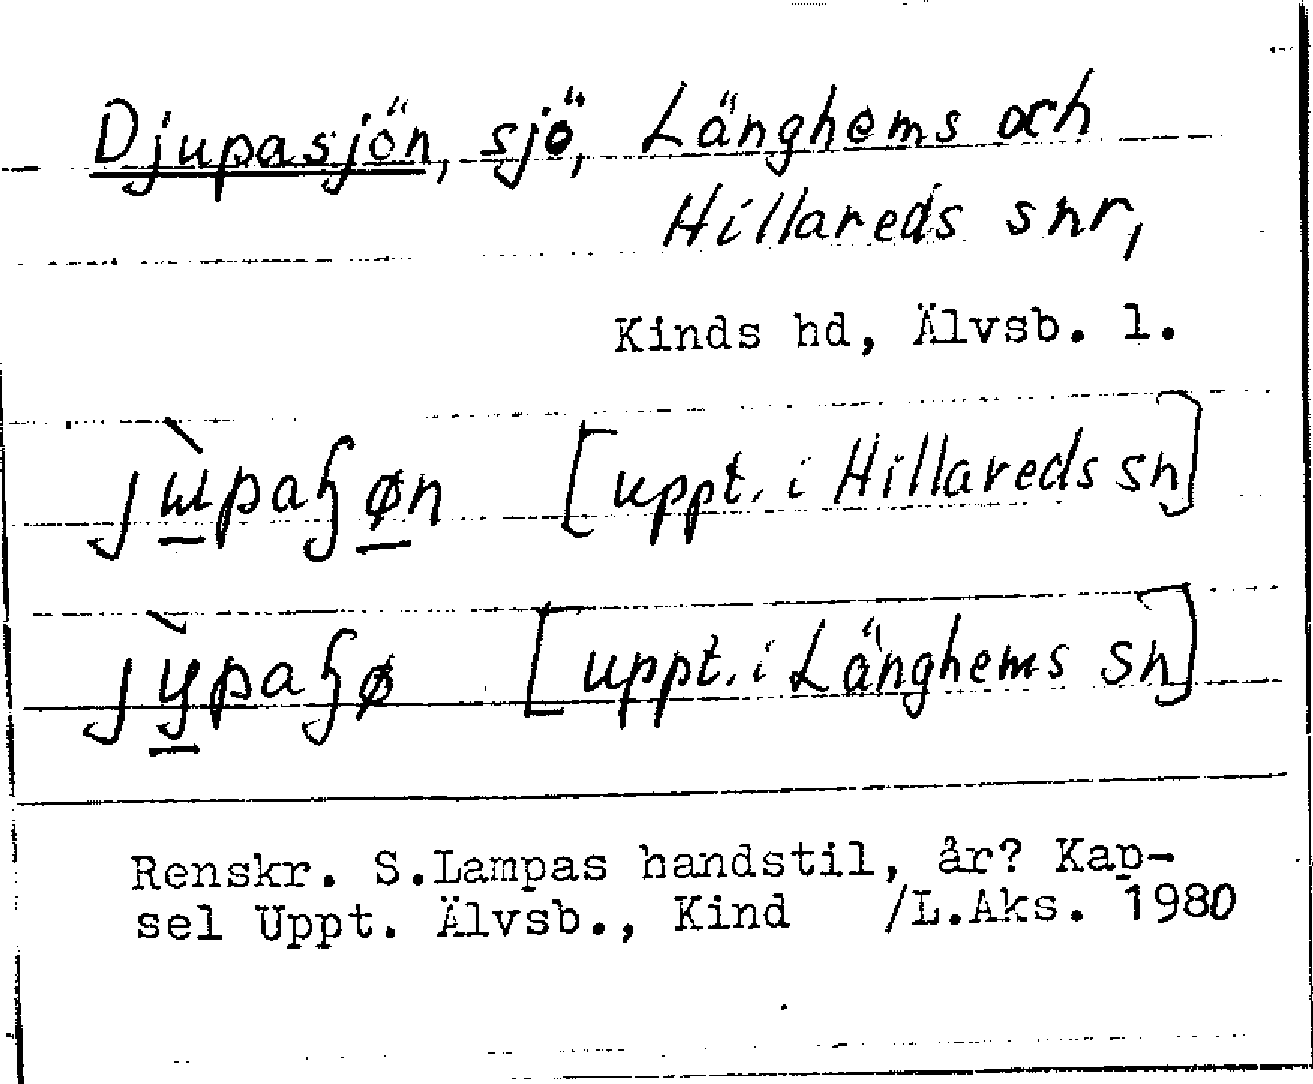 Djupasjön, sjö, Länghems och
Hillareds snr,
Kinds hd, Älvsb. l.
[uppt. i Hillareds sn]
[uppt. i Länghems sn]
Renskr. S.Lampas handstil, år? Kap-
sel Uppt. Älvsb., Kind /L.Aks. 1980